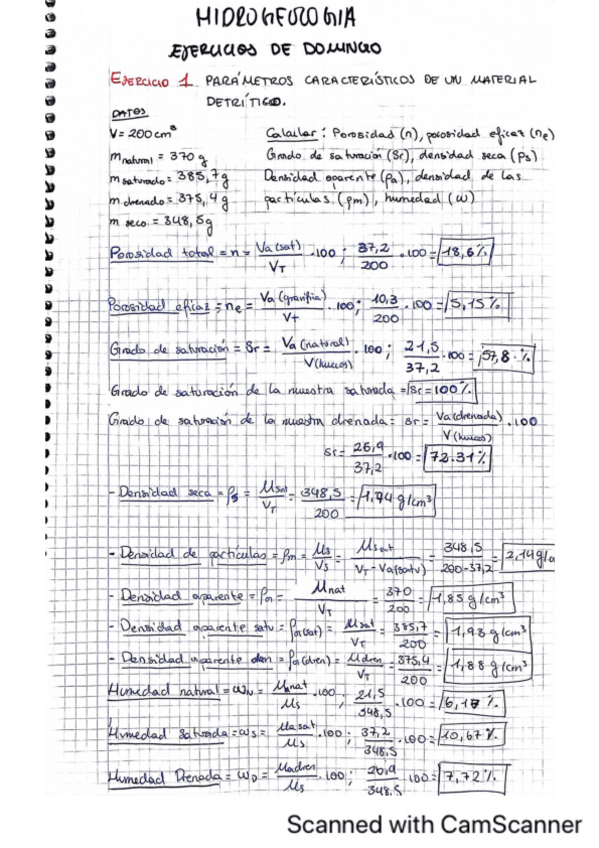 HIDROGEOLOGIA
EJERCICIOS DE DOMINGO
EJERCICIO 1. PARÁMETROS CARACTERÍSTICOS DE UN MATERIAL
DETRÍTICO.
DATOS
V = 200 cm³
Calcular: Porosidad (n), porosidad eficaz (ne)
m natural = 370 g
Grado de saturación (Sr), densidad seca (ρs)
m saturado = 385,7 g
Densidad aparente (ρa), densidad de las
m drenado = 375,4 g
partículas (ρm), humedad (w)
m seco = 348,5 g
Porosidad total = n = Va(sat)/VT · 100 ; 37,2/200 · 100 = 18,6%
Porosidad eficaz = ne = Va(gravífica)/Vt · 100 ; 10,3/200 · 100 = 5,15%
Grado de saturación = Sr = Va(natural)/V(huecos) · 100 ; 21,5/37,2 · 100 = 57,8 %
Grado de saturación de la muestra saturada = Sr = 100%
Grado de saturación de la muestra drenada = Sr = Va(drenada)/V(huecos) · 100
Sr = 26,9/37,2 · 100 = 72.31%
- Densidad seca = ρs = Msat/VT = 348,5/200 = 1,74 g/cm³
- Densidad de partículas = ρm = Ms/Vs = Msat/VT - Va(satu) = 348,5/200-37,2 = 2,14 g/c
- Densidad aparente = ρa = Mnat/VT = 370/200 = 1,85 g/cm³
- Densidad aparente satu = ρa(sat) = Msat/VT = 385,7/200 = 1,93 g/cm³
- Densidad aparente dren = ρa(dren) = Mdren/VT = 375,4/200 = 1,88 g/cm³
Humedad natural = WN = Manat/Ms · 100 ; 21,5/348,5 · 100 = 6,17 %
Humedad Saturada = WS = Masat/Ms · 100 ; 37,2/348,5 · 100 = 10,67 %
Humedad Drenada = WD = Madren/Ms · 100 ; 26,9/348,5 100 = 7,72%
Scanned with CamScanner